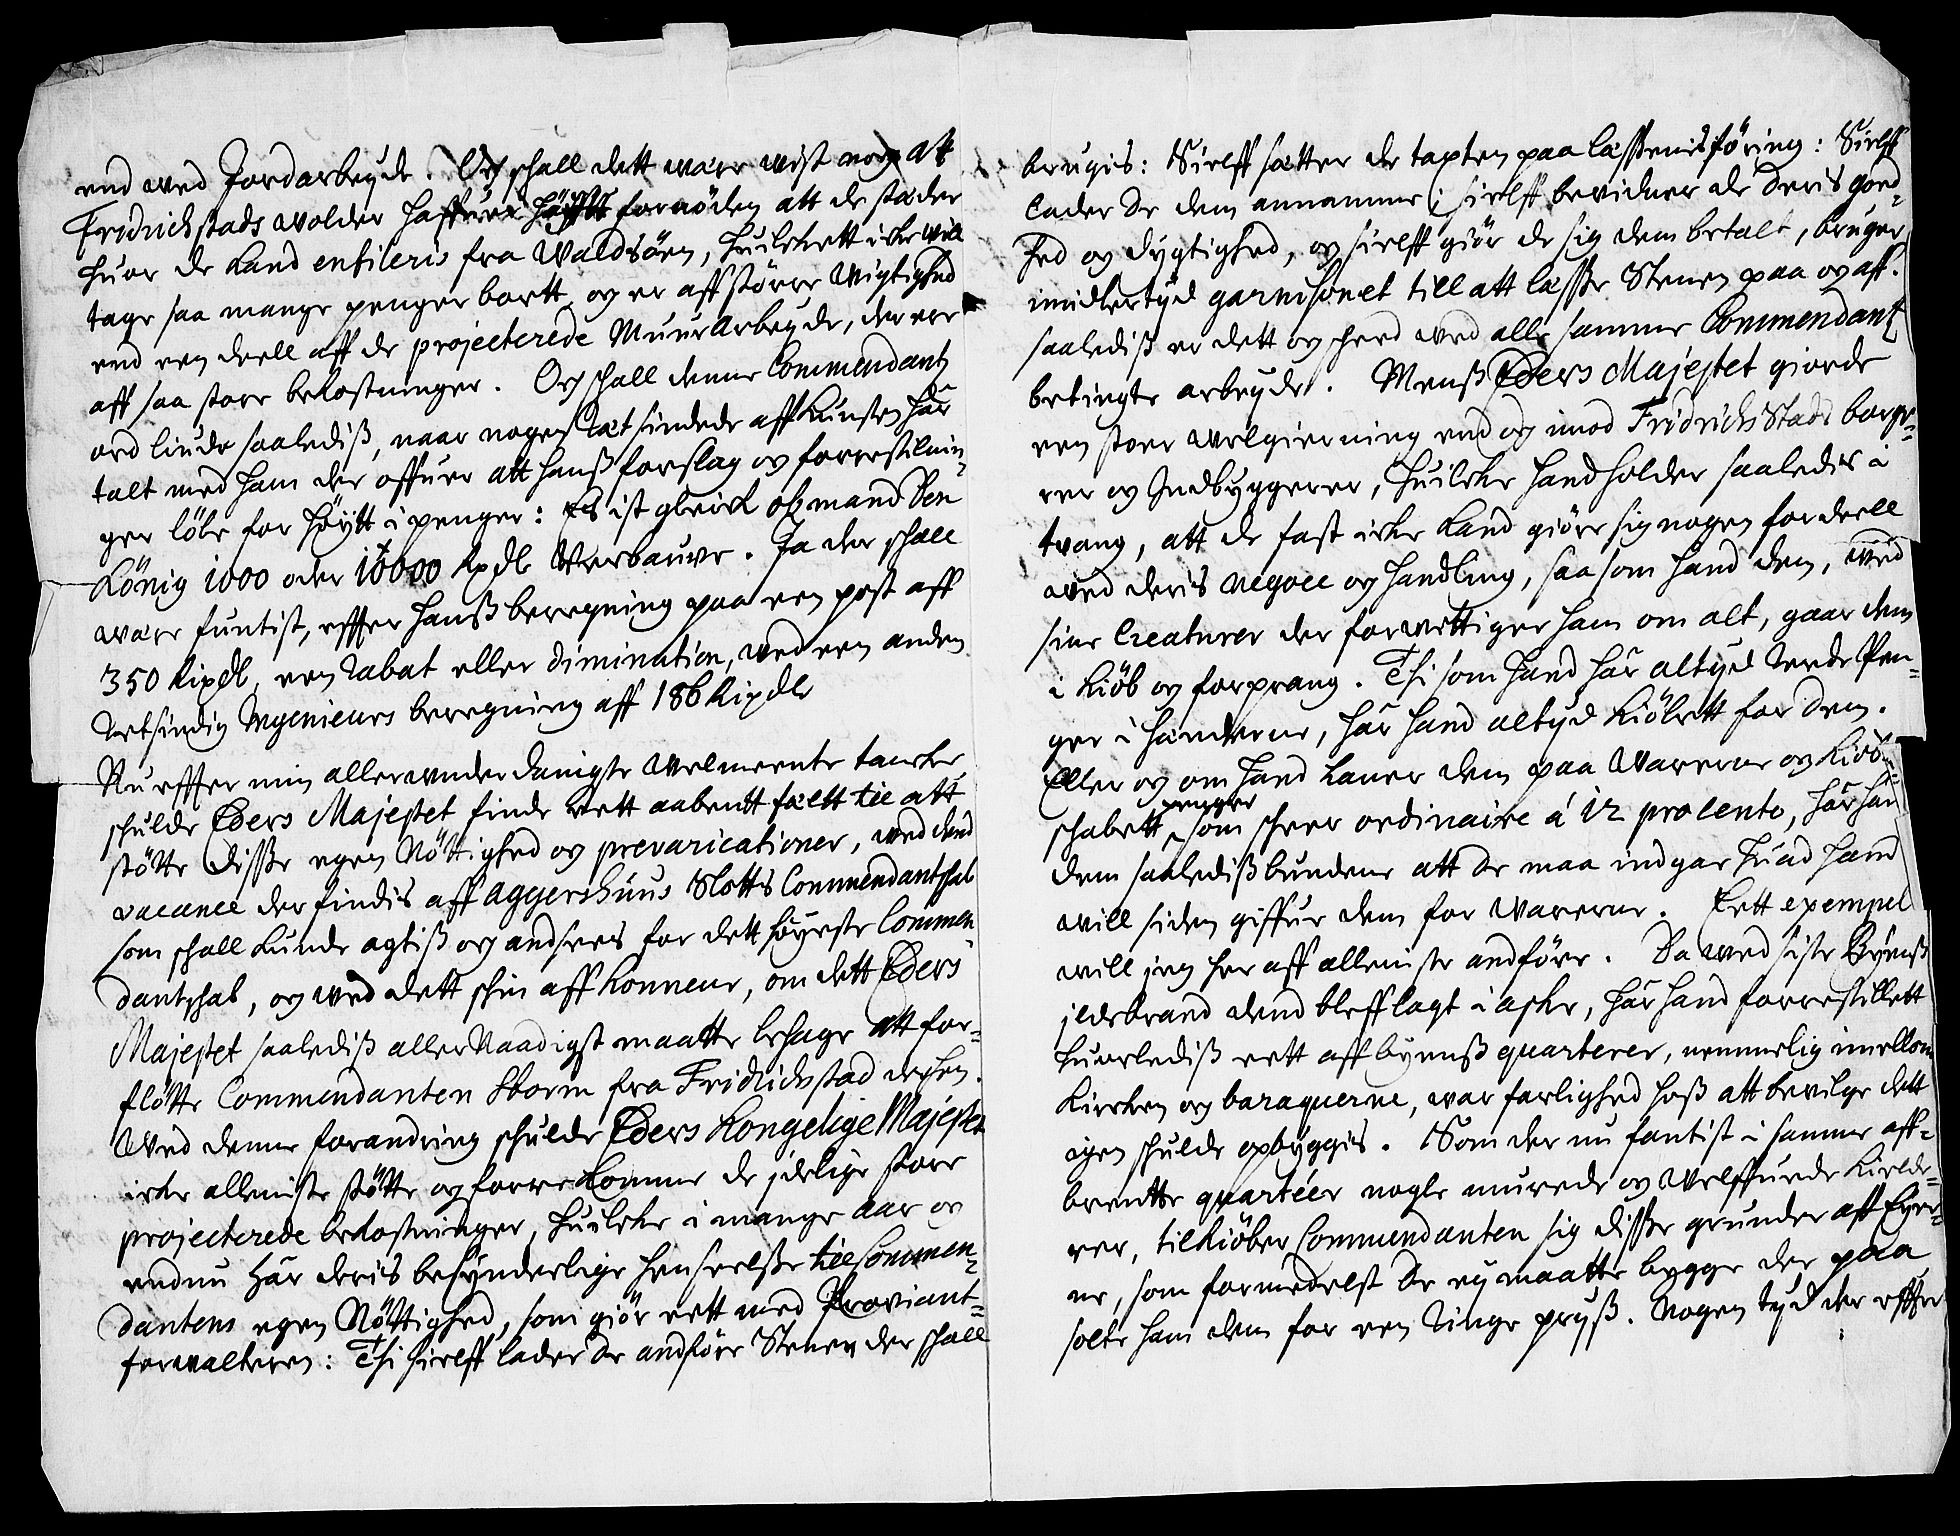 end ved Jordarbeyde. Og schall dett være vist nog at
Fridrichstads wolder haffuer høystt fornöden att de stæder
huor de kand enfileris fra Waldsöen, huilchett iche will
tage saa mange penger bortt, og er aff större Wigtighed
end een deell aff de projecterede Muurarbeyde, der ere
aff saa store bekostninger. Og schall denne Commendantz
ord liude saalediß, naar nogen læt sindede aff kunsten har
talt med ham der offuer att hanß forslag og forrestilnin¬
ger löbe for höytt i penger: Es ist gleich ob mand den
König 1000 oder 10000 Rxdl Verbauwe. Ja der schall
være funtist, effter hanß beregning paa een post aff
350 Rixdl, een Rabat eller diminution, ved een anden
Retsindig Ingenieurs beregning aff 186 Rixdlr
Nu effter min allerunderdanigste velmeente tancke
schulde Eders Majestet finde ett aabentt fælt till att
stötte disse egen Nöttighed og prevaricationer, ved dend
vacance der findis aff Aggershuus Slotts Commendantschab
som schall kunde agtiß og andsees for dett höyeste Commen¬
dantschab, og ved dett skin aff honneur, om dett Eders
Majestet saalediß aller Naadigst maatte behage att for¬
flötte Commendanten Storm fra Fridrichstad derhen.
Ved denne forandring schulde Eders Kongelige Majestet
iche alleniste stötte og forrekomme de jdelige store
projecterede bekostninger, huilche i mange Aar og
endnu har deris besynderlige henseelße till Commen¬
dantens egen Nöttighed, som giör ett med Proviant¬
forvalteren: Thi sielff lader de andföre Stenen der schall
brugis: Sielff sætter de taxten paa læssenis föring: Sielff
lader de dem annamme; sielff bevidner de deris goed¬
hed og dygtighed, og sielff giör de sig dem betalt, bruger
imidlertyd garnisonet till att læsse Stenen paa og aff.
saalediß er dett og scheed ved alle samme Commendantz
betingte arbeyde. Menß Eders Majestet giorde
een stoer velgierning end og imod FridrichsStads borge¬
rer og Indbyggerer, huilche hand holder saaledis i
tvang, att de fast iche kand giöre sig nogen fordeell
ved deris negoce og handling, saa som hand den, ved
sine Creaturer der forvittiger ham om alt, gaar dem
i kiöb og forprang. Thi som hand har altyd Rede Pen¬
ger i hænderne, har hand altyd kiöbett for dem.
Eller og om hand laner dem paa Varerne og kiöb¬
schabett penger som scheer ordinaire á 12 procento, har hand
dem saalediß bundene att de maa indgaa huad hand
will siden giffue dem for varerne. Eett exempel
will jeg her aff alleniste andföre. Da ved siste Byenß
jldebrand dend bleff lagt i aske, har hand forrestillett
huorlediß ett aff byenß quarterer, nemmelig imellom
Kircken og baraquerne, war farlighed hoß att bevilge dett
igen schulde opbyggis. Som der nu fantist i samme aff¬
brendte quartéer nogle murede og Velffuede Kielde¬
rer, tilkiöber Commendanten sig disse grunder aff Eyer¬
ne, som formedelst de ey maatte bygge der paa
solte ham dem for een Ringe pryß. Nogen tyd der effter